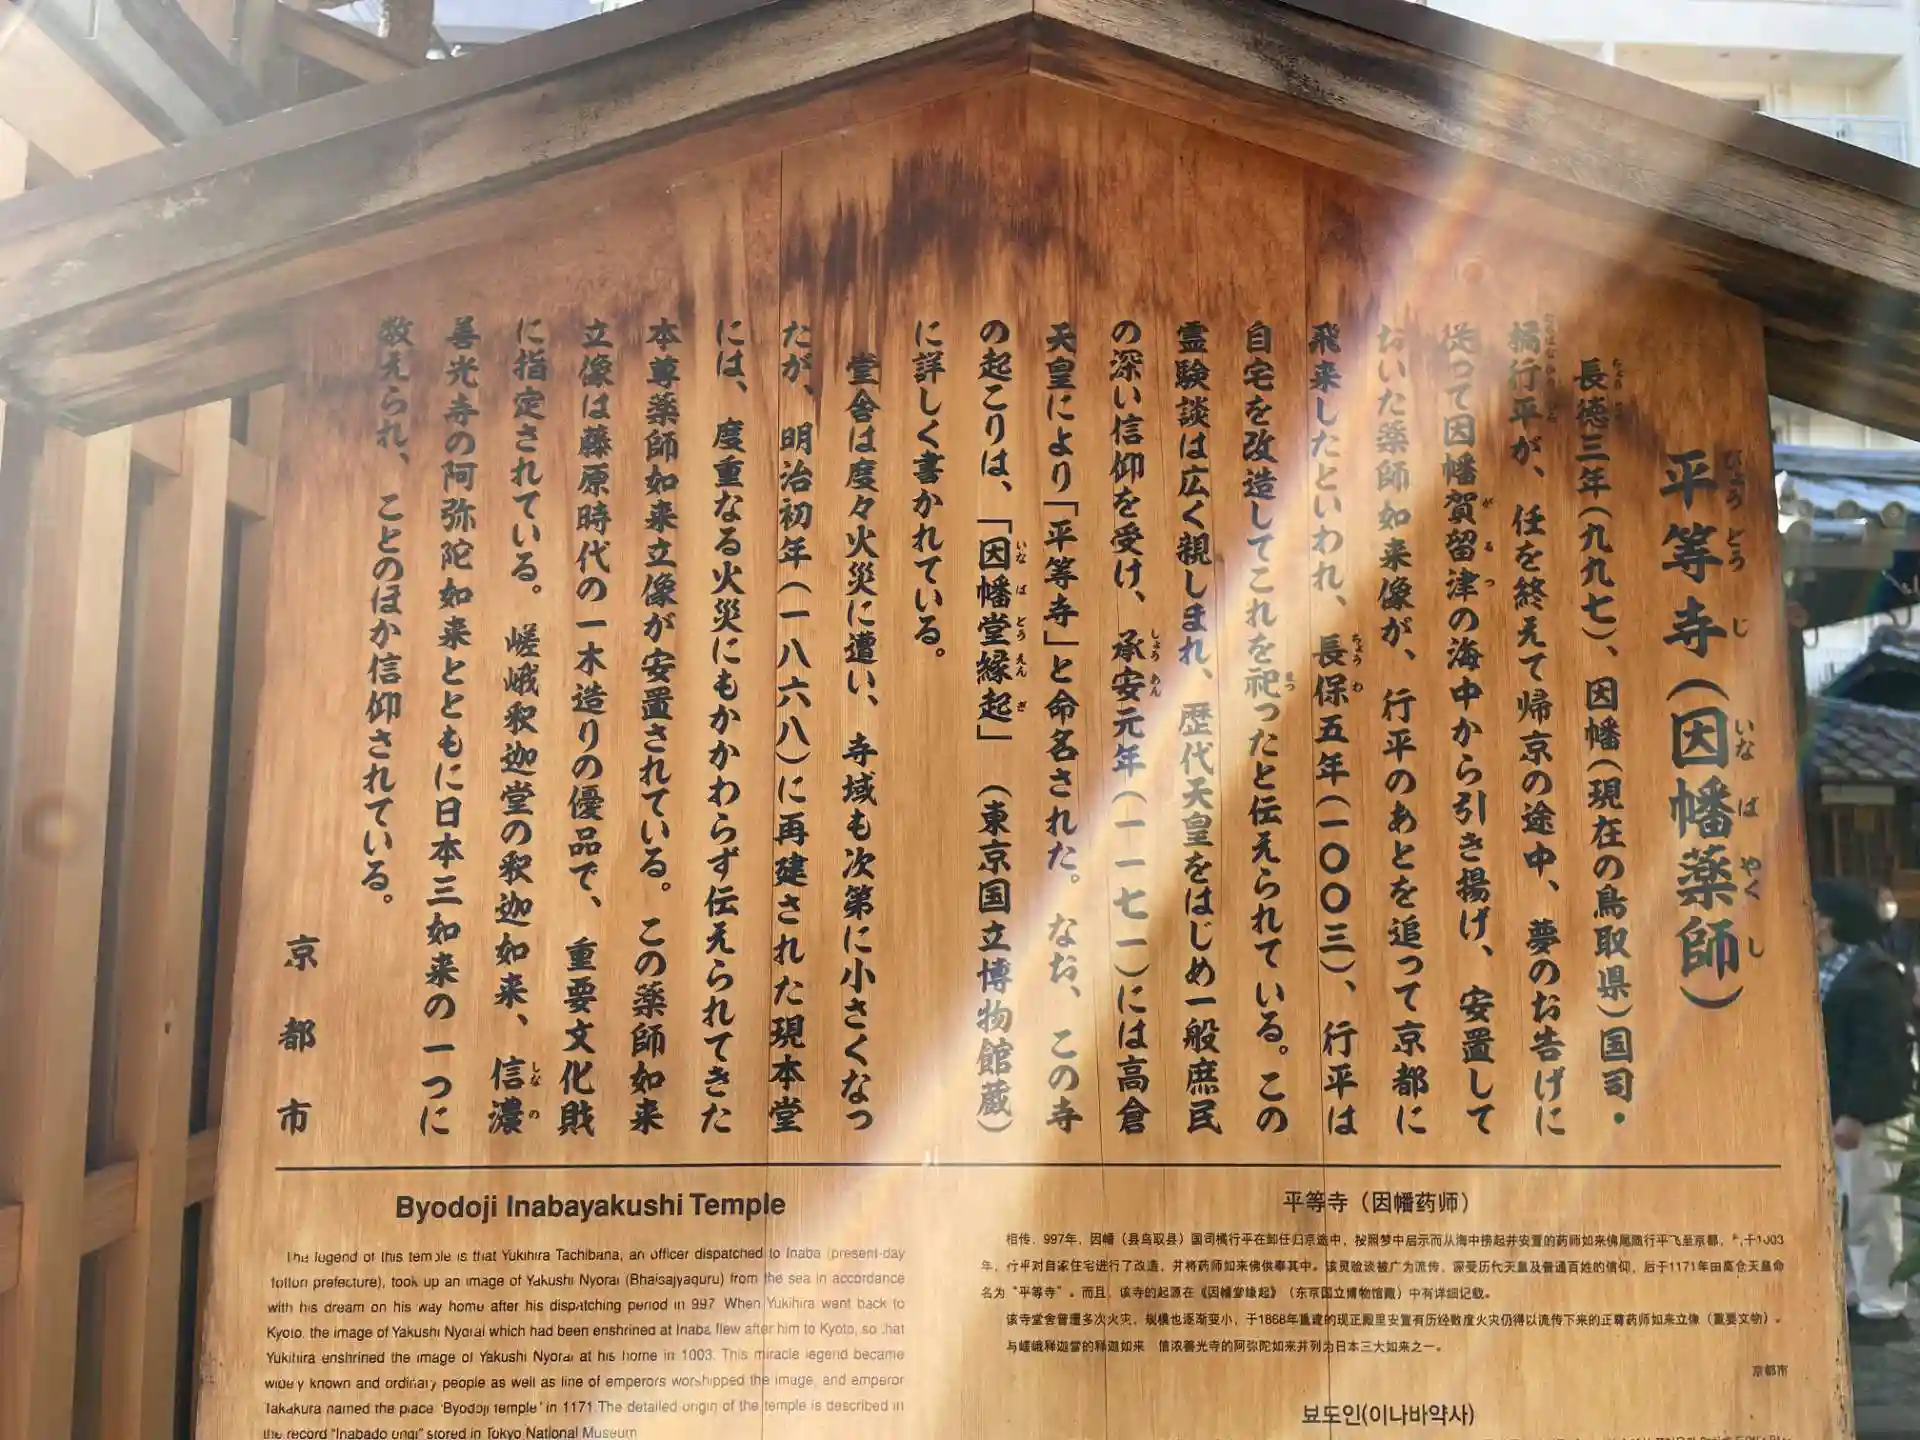 平等寺(因幡薬師)
長徳三年(九九七)、因幡(現在の鳥取県)国司・
橘行平が、任を終えて帰京の途中、夢のお告げに
従って因幡賀留津の海中から引き揚げ、安置して
おいた薬師如来像が、行平のあとを追って京都に
飛来したといわれ、長保五年(一〇〇三)、行平は
自宅を改造してこれを祀ったと伝えられている。この
霊験談は広く親しまれ、歴代天皇をはじめ一般庶民
の深い信仰を受け、承安元年(一一七一)には高倉
天皇により「平等寺」と命名された。なお、この寺
の起こりは、「因幡堂縁起」(東京国立博物館蔵)
に詳しく書かれている。
堂舎は度々火災に遭い、寺域も次第に小さくなっ
たが、明治初年(一八六八)に再建された現本堂
には、度重なる火災にもかかわらず伝えられてきた
本尊薬師如来立像が安置されている。この薬師如来
立像は藤原時代の一木造りの優品で、重要文化財
に指定されている。嵯峨釈迦堂の釈迦如来、信濃
善光寺の阿弥陀如来とともに日本三如来の一つに
数えられ、ことのほか信仰されている。
京都市
Byodoji Inabayakushi Temple
The legend of this temple is that Yukihira Tachibana, an officer dispatched to Inaba (present-day
Tottori prefecture), took up an image of Yakushi Nyorai (Bhaisajyaguru) from the sea in accordance
with his dream on his way home after his dispatching period in 997. When Yukihira went back to
Kyoto, the image of Yakushi Nyorai which had been enshrined at Inaba flew after him to Kyoto, so that
Yukihira enshrined the image of Yakushi Nyorai at his home in 1003. This miracle legend became
widely known and ordinary people as well as line of emperors worshipped the image, and emperor
Takakura named the place "Byodoji temple" in 1171. The detailed origin of the temple is described in
the record "Inabado engi" stored in Tokyo National Museum
平等寺（因幡药师）
相传，997年，因幡（县鸟取县）国司橘行平在卸任归京途中，按照梦中启示而从海中捞起并安置的药师如来佛尾随行平飞至京都，于1003
年，行平对自家住宅进行了改造，并将药师如来佛供奉其中。该灵验谈被广为流传，深受历代天皇及普通百姓的信仰，后于1171年由高仓天皇命
名为“平等寺”。而且，该寺的起源在《因幡堂缘起》（东京国立博物馆藏）中有详细记载。
该寺堂舍曾遭多次火灾，规模也逐渐变小，于1868年重建的现正殿里安置有历经数度火灾仍得以流传下来的正尊药师如来立像（重要文物）。
与嵯峨释迦堂的释迦如来 信浓善光寺的阿弥陀如来并列为日本三大如来之一。
京都市
뵤도인(이나바약사)